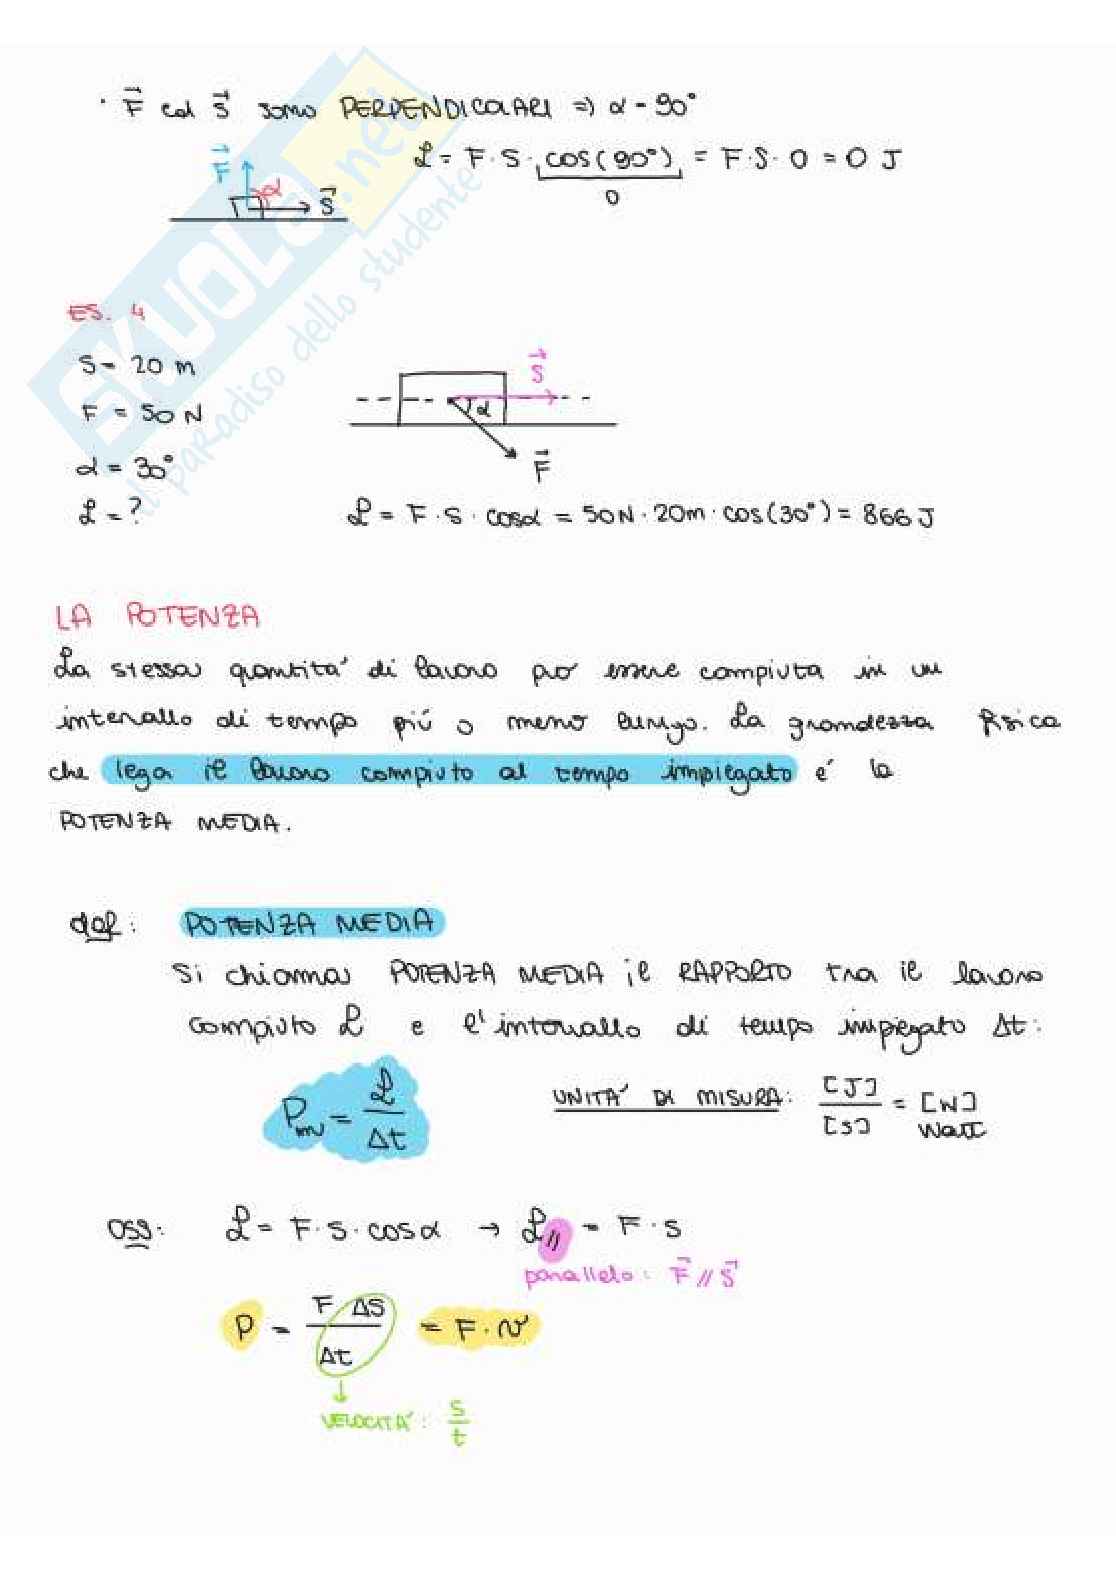 · F⃗ ed S⃗ sono PERPENDICOLARI => α = 90°
L = F · S · cos(90°) = F · S · 0 = 0 J
0
F⃗
α
S⃗
SKUOLA.net
il paradiso dello studente
ES. 4
S = 20 m
F = 50 N
α = 30°
L = ?
S⃗
α
F⃗
L = F · S · cosα = 50N · 20m · cos(30°) = 866 J
LA POTENZA
La stessa quantità di lavoro può essere compiuta in un
intervallo di tempo più o meno lungo. La grandezza fisica
che lega il lavoro compiuto al tempo impiegato é la
POTENZA MEDIA.
def: POTENZA MEDIA
Si chiama POTENZA MEDIA il RAPPORTO tra il lavoro
compiuto L e l'intervallo di tempo impiegato Δt:
Pm = L / Δt
UNITA' DI MISURA: [J] / [s] = [W]
Watt
OSS: L = F · S · cosα → L// = F · S
parallelo: F⃗ // S⃗
P = F ΔS / Δt = F · v
VELOCITA': S / t